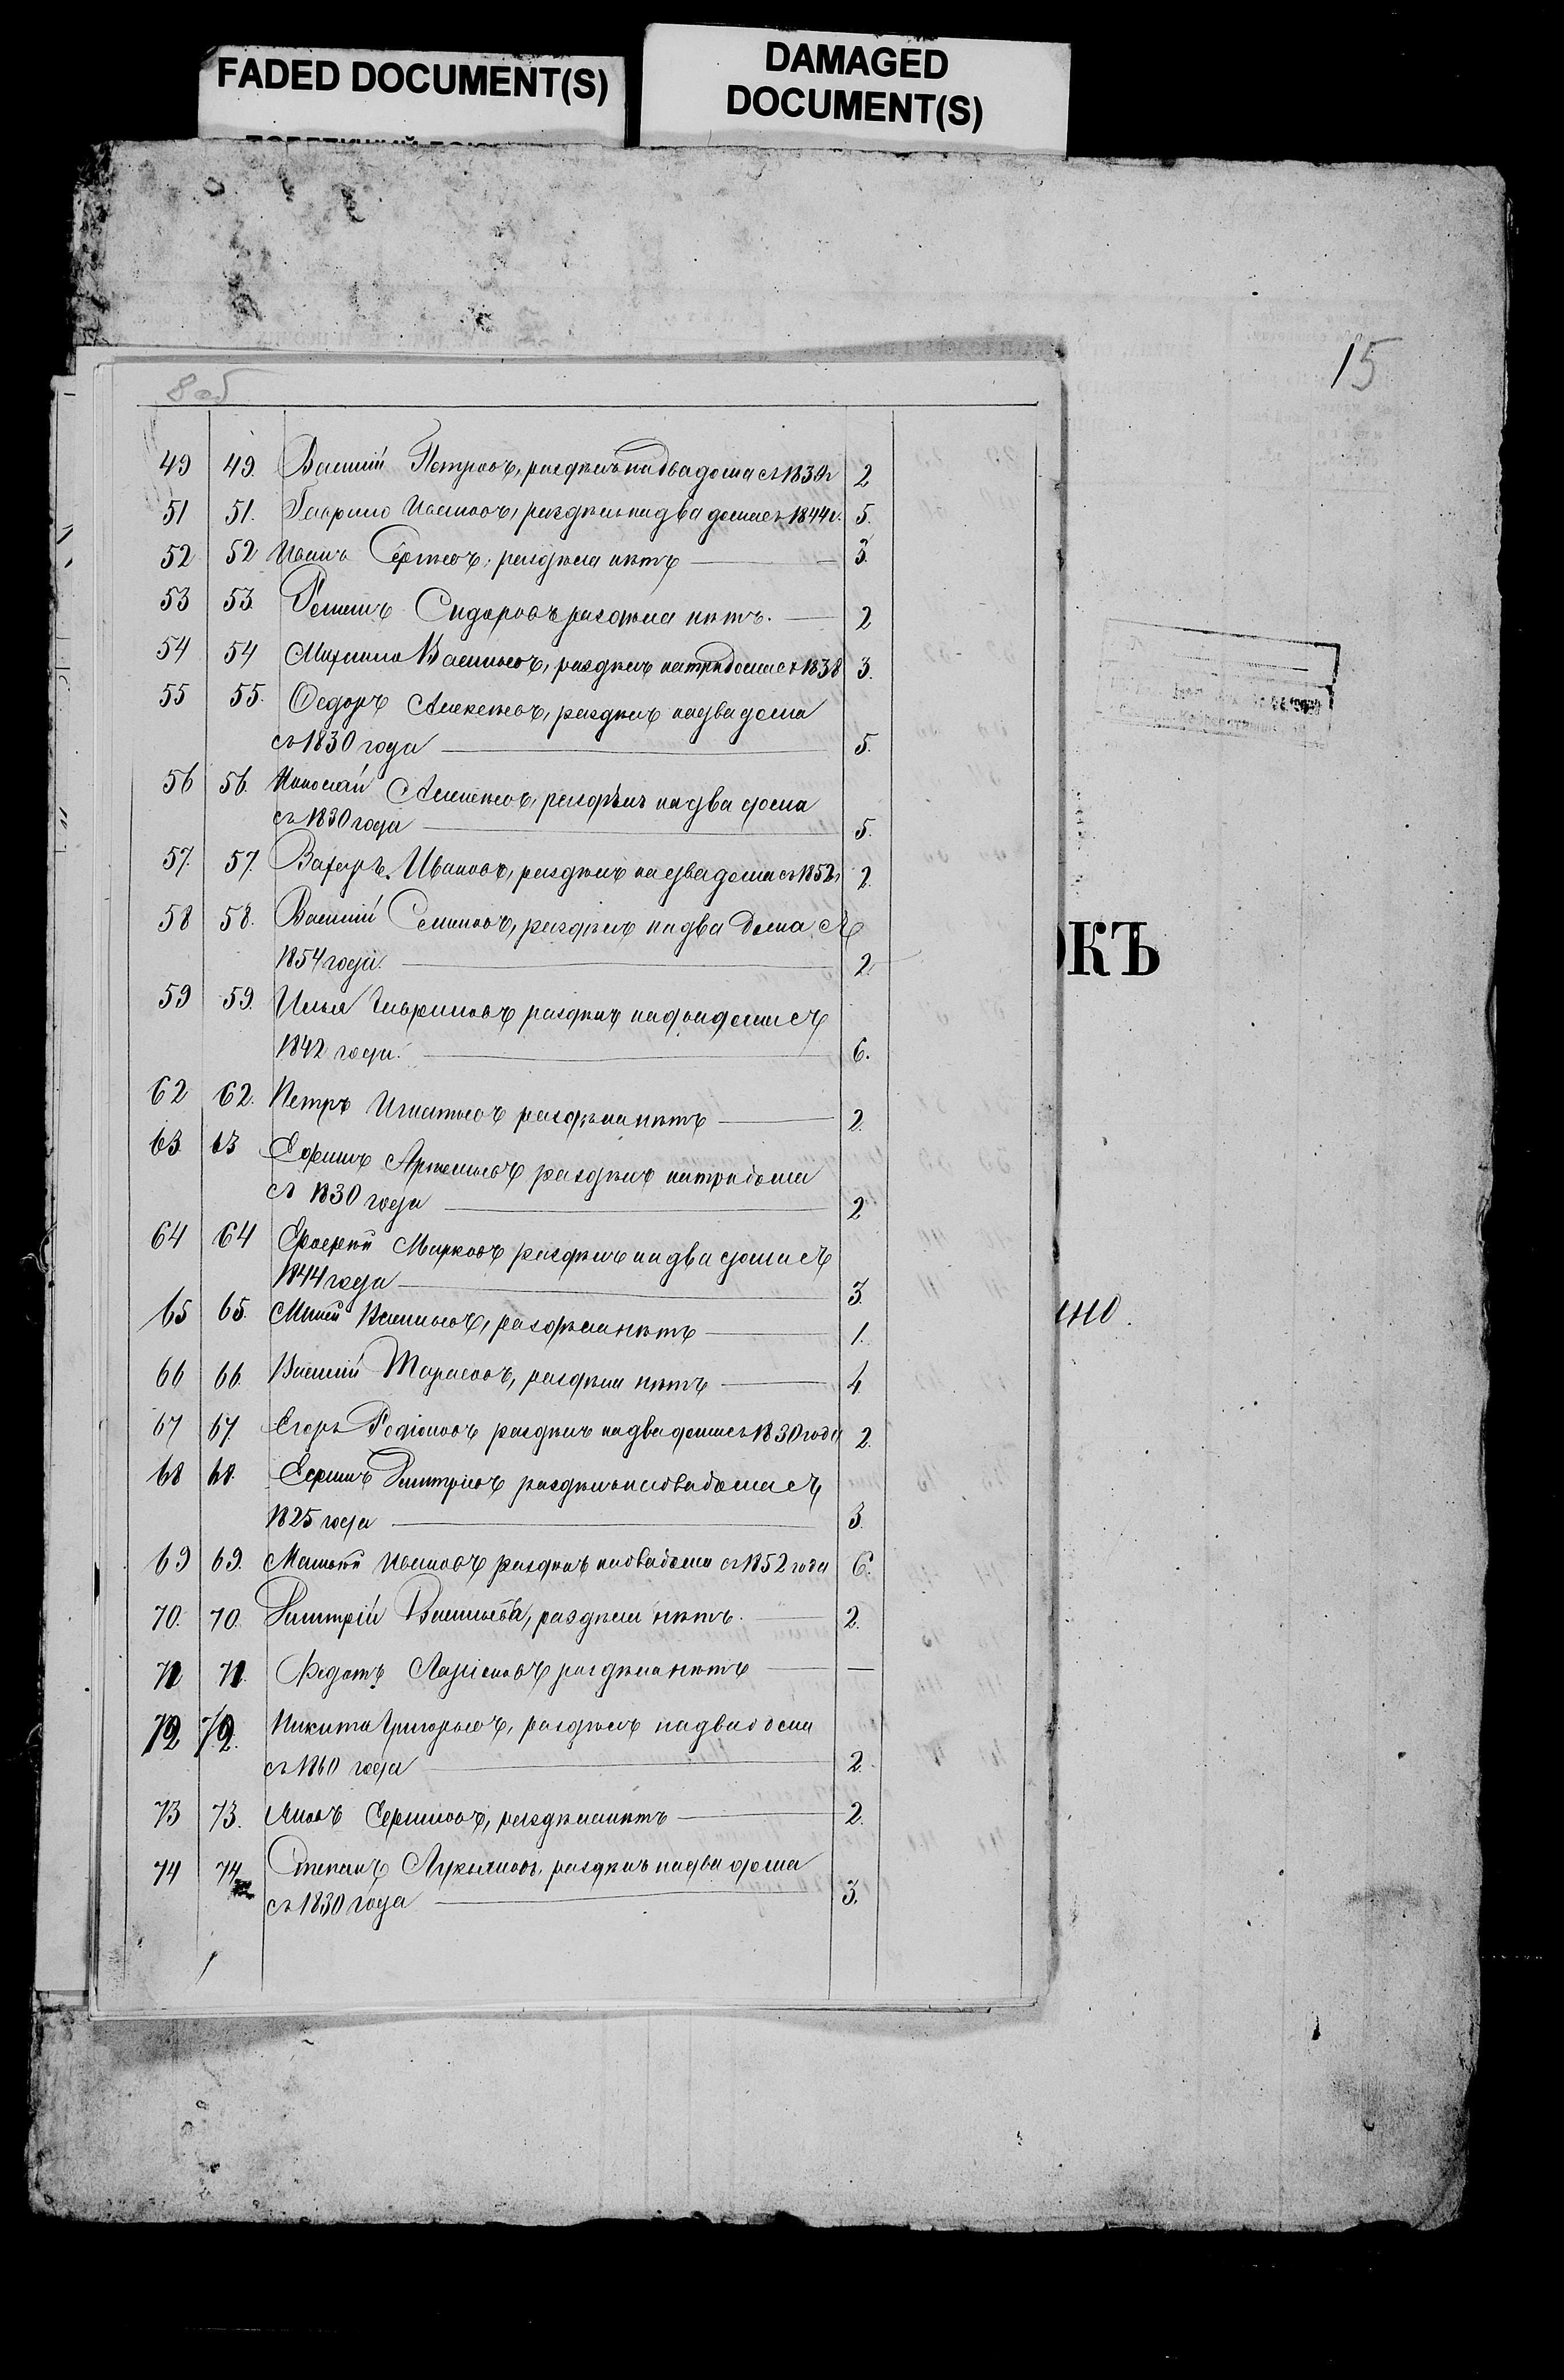 FADED DOCUMENT(S)
DAMAGED
DOCUMENT(S)
15
8 об
49 49. Василий Петровъ, раздѣлъ на два дома съ 1830 г
2
51 51. Гаврило Ивановъ, раздѣлъ на два дома съ 1844 г.
5.
52 52 Иванъ Сергѣевъ, раздѣла нѣтъ
3.
53 53. Романъ Сидоровъ раздѣла нѣтъ.
2
54 54 Михаила Васильевъ, раздѣлъ на три дома съ 1838
3.
55 55. Ѳедоръ Алексѣевъ, раздѣлъ на два дома
съ 1830 года
5.
56 56. Николай Алексѣевъ, раздѣлъ на два дома
съ 1830 года
5.
57. 57. Захаръ Ивановъ, раздѣлъ на два дома съ 1852 г
2.
58 58. Василий Семеновъ, раздѣлъ на два дома съ
1854 года.
2.
59 59. Илья Гавриловъ раздѣлъ на два дома съ
1842 года.
6.
62 62. Петръ Игнатьевъ раздѣла нѣтъ
2.
63. 63 Ефимъ Артемьевъ раздѣлъ на три дома
съ 1830 года
2
64 64 Ерофей Марковъ раздѣлъ на два дома съ
1844 года
3.
65 65. Васильевъ, раздѣла нѣтъ
1.
66 66. Василий Тарасовъ, раздѣла нѣтъ
4
67 67. Егоръ Родіоновъ раздѣлъ на два дома съ 1830 года
2.
68 68. Дмитріевъ раздѣлъ на два дома съ
1825 года
3.
69 69. Матвѣй Ивановъ раздѣлъ на два дома съ 1852 года
6.
70. 70. Дмитрій Васильевъ, раздѣла нѣтъ.
2.
71 71. Федотъ Ларіоновъ раздѣла нѣтъ
—
72 72. Никита Григорьевъ, раздѣлъ на два дома
съ 1860 года
2.
73 73. Яковъ раздѣла нѣтъ
2.
74 74. Степанъ Лукьяновъ, раздѣлъ на два дома
съ 1830 года
3.
ОКЪ